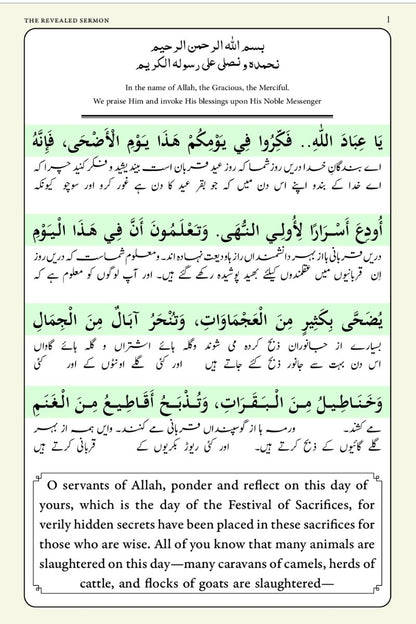 THE REVEALED SERMON
1
بسم الله الرحمن الرحيم
نحمده و نصلى على رسوله الكريم
In the name of Allah, the Gracious, the Merciful.
We praise Him and invoke His blessings upon His Noble Messenger
يَا عِبَادَ اللّٰهِ.. فَكِّرُوا فِي يَوْمِكُمْ هَذَا يَوْمِ الْأَضْحَى، فَإِنَّهُ
اے بندگانِ خدا دریں روز شما کہ روز عید قربان است بیندیشید و فکر کنید چرا کہ
اے خدا کے بندو اپنے اس دن میں کہ جو بقر عید کا دن ہے غور کرو اور سوچو کیونکہ
أُودِعَ أَسْرَارًا لِأُولِي النُّهَى. وَتَعْلَمُونَ أَنَّ فِي هَذَا الْيَوْمِ
دریں قربانی ہا از بہر دانشمنداں راز ہا ودیعت نہادہ اند۔ و معلوم شماست کہ دریں روز
اِن قربانیوں میں عقلمندوں کیلئے بھید پوشیدہ رکھے گئے ہیں۔ اور آپ لوگوں کو معلوم ہے کہ
يُضَحَّى بِكَثِيرٍ مِنَ الْعَجْمَاوَاتِ، وَتُنْحَرُ آبَالٌ مِنَ الْجِمَالِ
بسیارے از جانوران ذبح کردہ می شوند وگلہ ہائے اشتراں و گلہ ہائے گاواں
اس دن بہت سے جانور ذبح کئے جاتے ہیں اور کئی گلے اونٹوں کے اور کئی
وَخَنَاطِيلُ مِنَ الْبَقَرَاتِ، وَتُذْبَحُ أَقَاطِيعُ مِنَ الْغَنَمِ
می کشند۔ ورمہ ہا از گوسپنداں قربانی می کنند۔ وایں ہمہ از بہر
گلے گائیوں کے ذبح کرتے ہیں۔ اور کئی ریوڑ بکریوں کے قربانی کرتے ہیں
O servants of Allah, ponder and reflect on this day of
yours, which is the day of the Festival of Sacrifices, for
verily hidden secrets have been placed in these sacrifices for
those who are wise. All of you know that many animals are
slaughtered on this day—many caravans of camels, herds of
cattle, and flocks of goats are slaughtered—